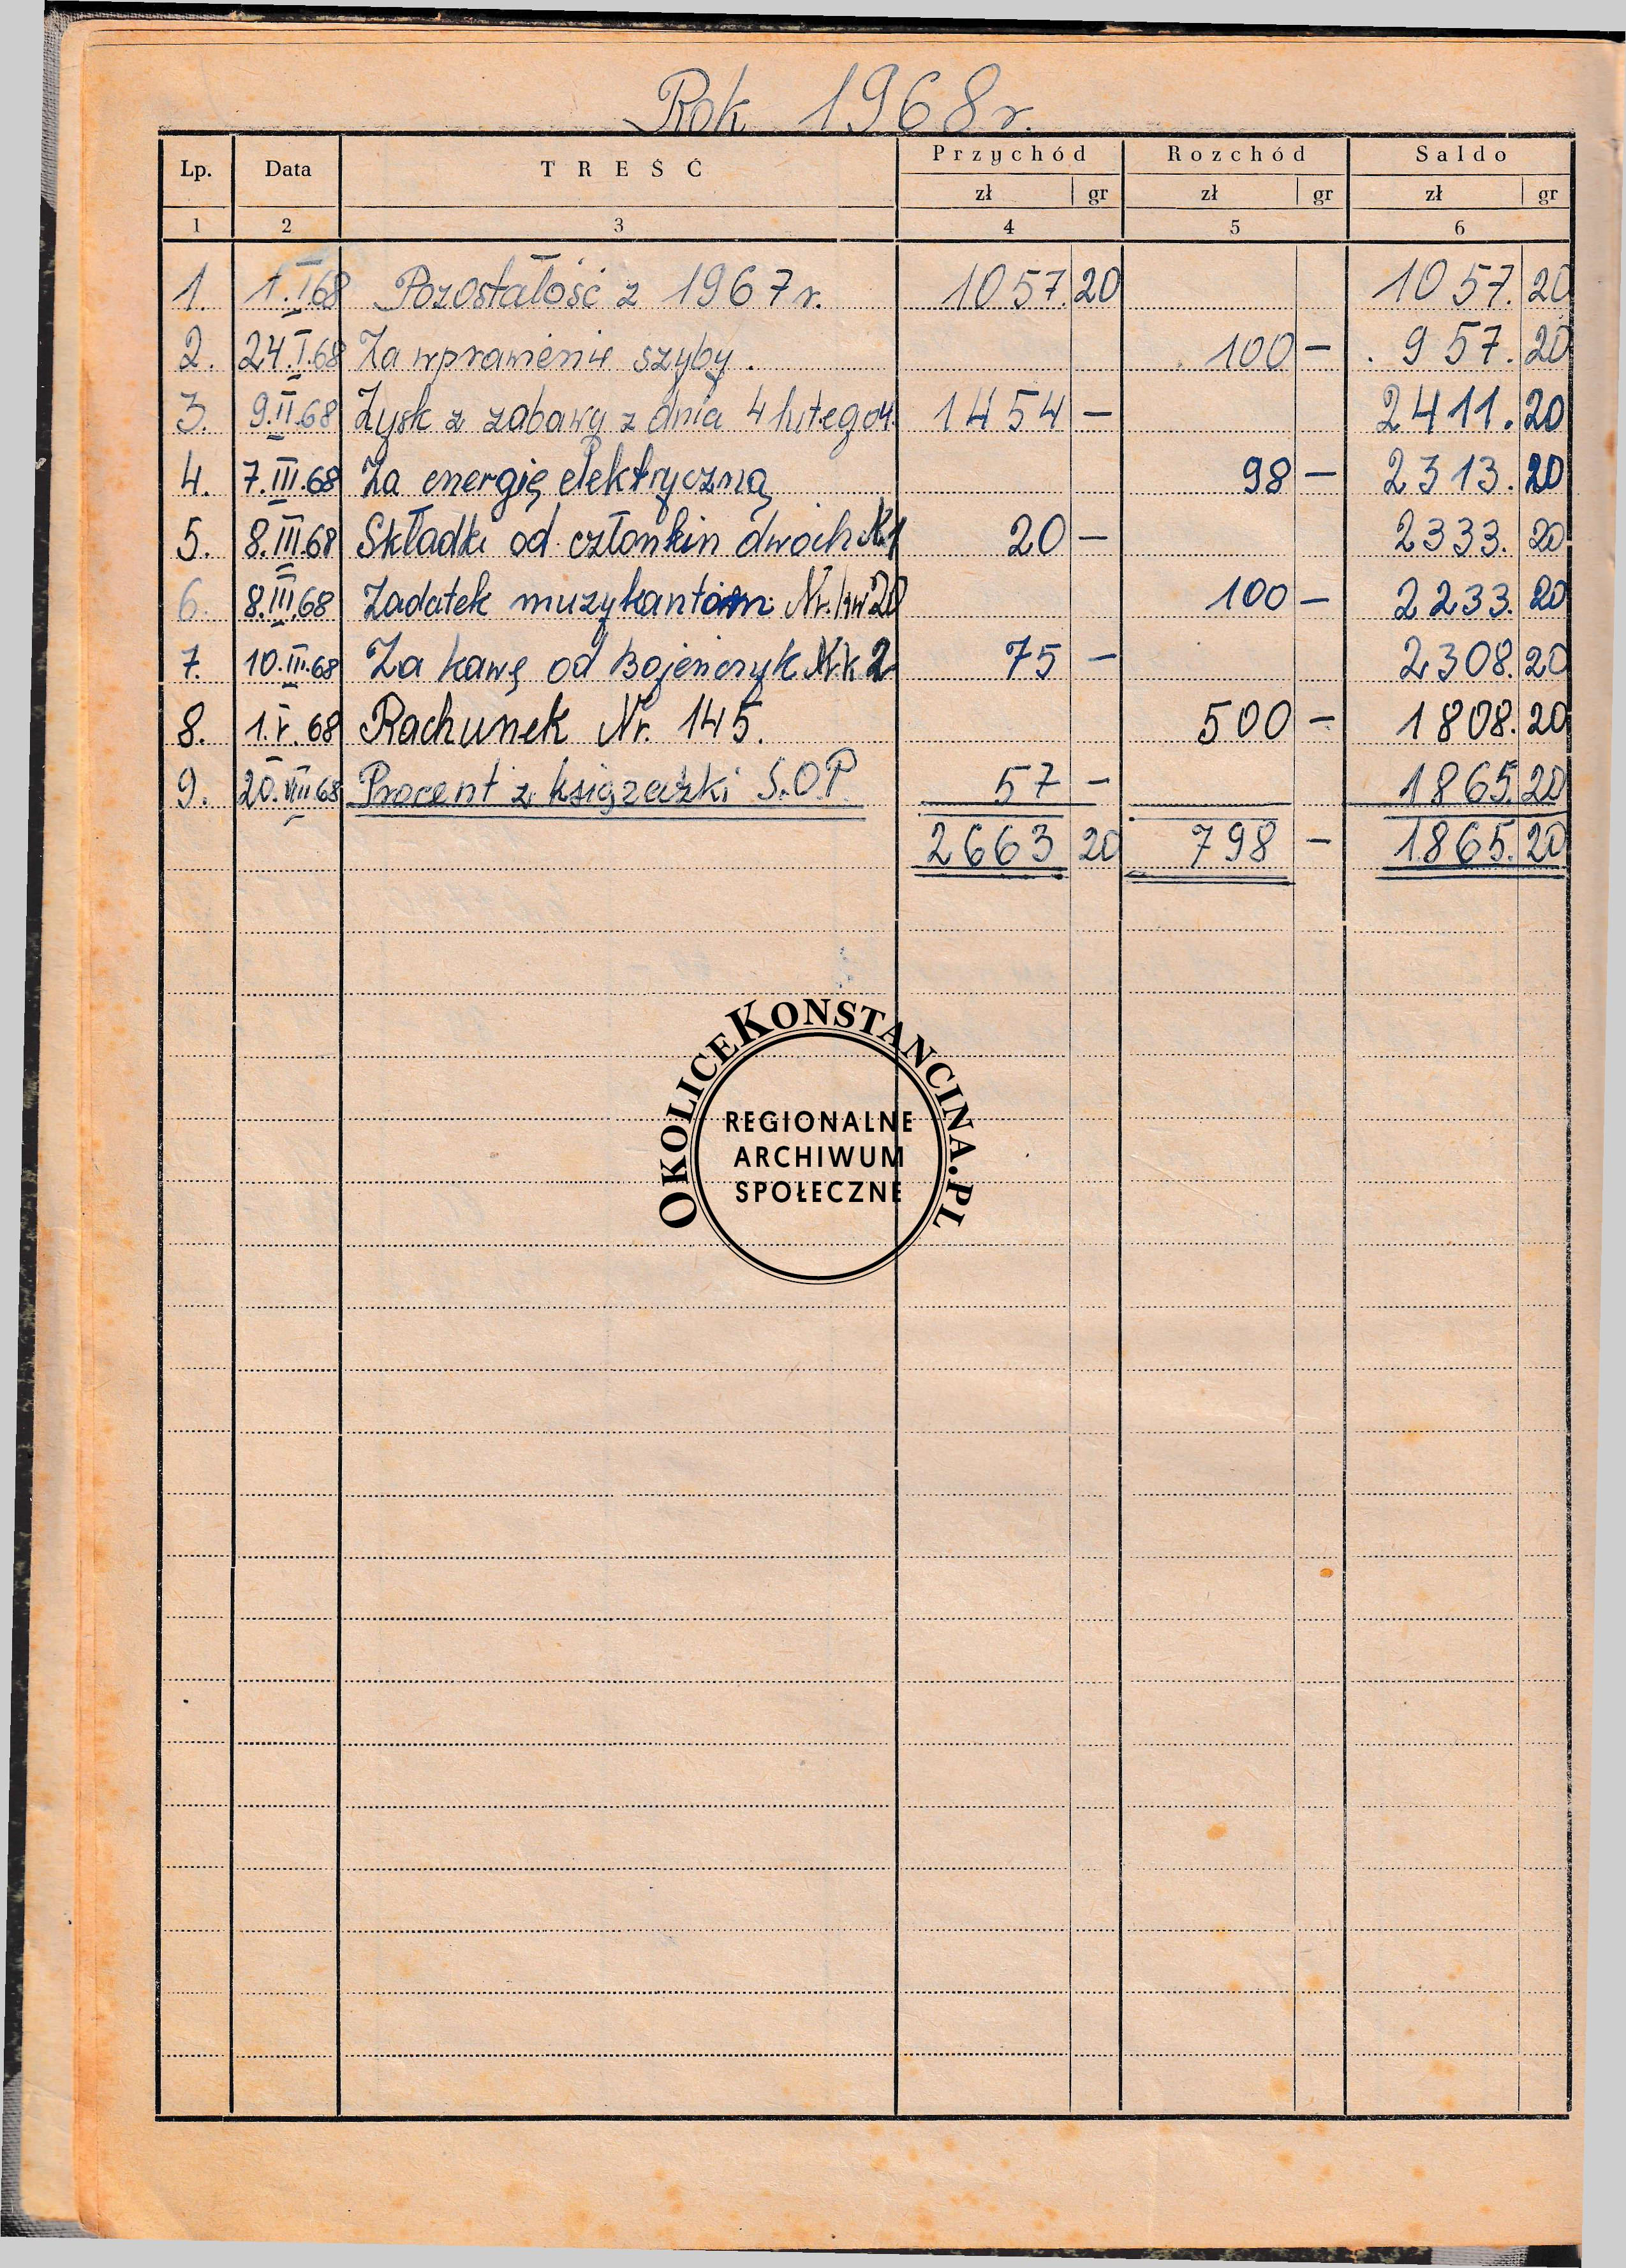 Rok 1968 r.
Lp. Data TREŚĆ Przychód Rozchód Saldo
zł gr zł gr zł gr
1 2 3 4 5 6
1. 1.I.68 Pozostałość z 1967 r. 1057. 20 1057. 20
2. 24.I.68 Za wprawienie szyby. 100 - 957. 20
3. 9.II.68 Zysk z zabawy z dnia 4 lutego 1454 - 2411. 20
4. 7.III.68 Za energię elektryczną 98 - 2313. 20
5. 8.III.68 Składki od członkiń dwóch 20 - 2333. 20
6. 8.III.68 Zadatek muzykantom Nr. kw 20 100 - 2233. 20
7. 10.III.68 Za kawę od Bojeńczyk Nr. k 2 75 - 2308. 20
8. 1.V.68 Rachunek Nr. 145. 500 - 1808. 20
9. 20.VIII.68 Procent z książeczki S.O.P. 57 - 1865. 20
2663 20 798 - 1865. 20
OKOLICEKONSTANCINA.PL
REGIONALNE
ARCHIWUM
SPOŁECZNE